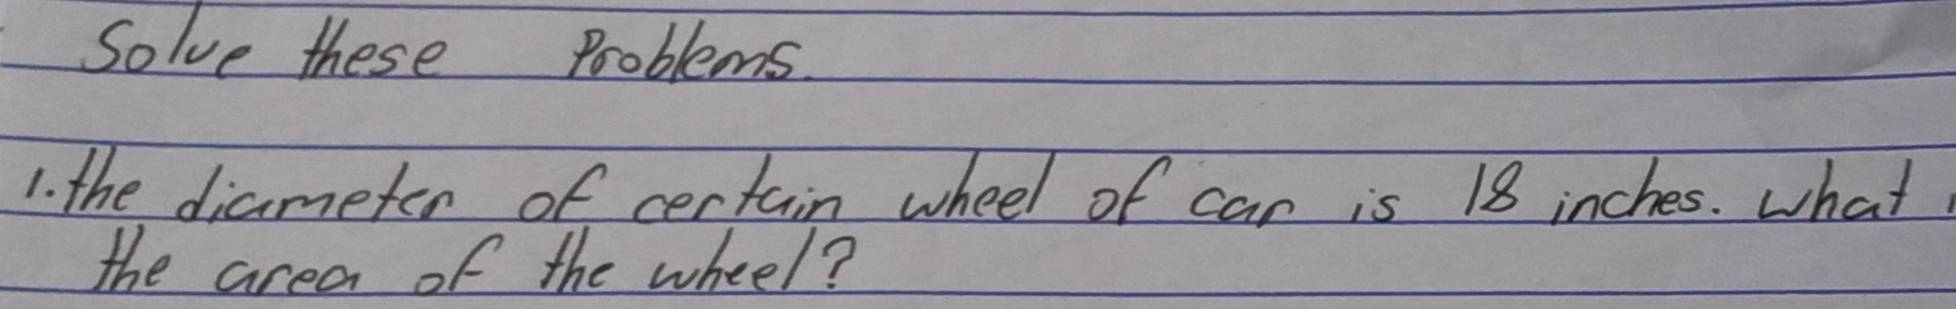 Solve these Problems.
1. the diameter of certain wheel of car is 18 inches. what
the area of the wheel?